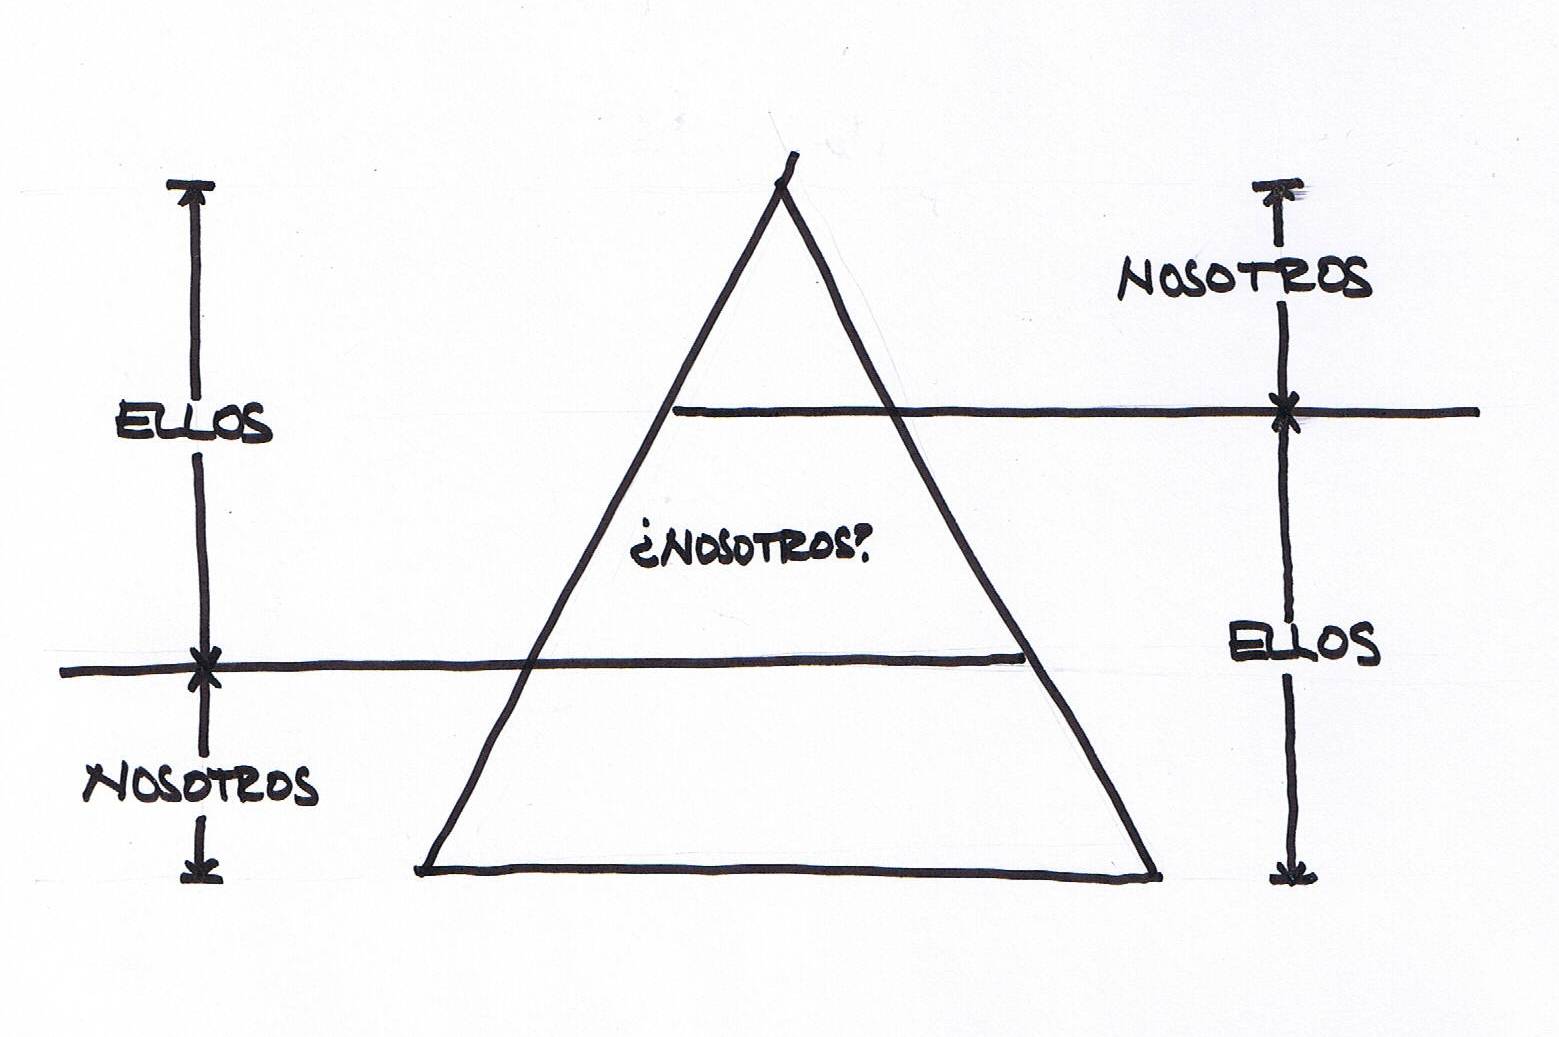 NOSOTROS
ELLOS
¿NOSOTROS?
ELLOS
NOSOTROS